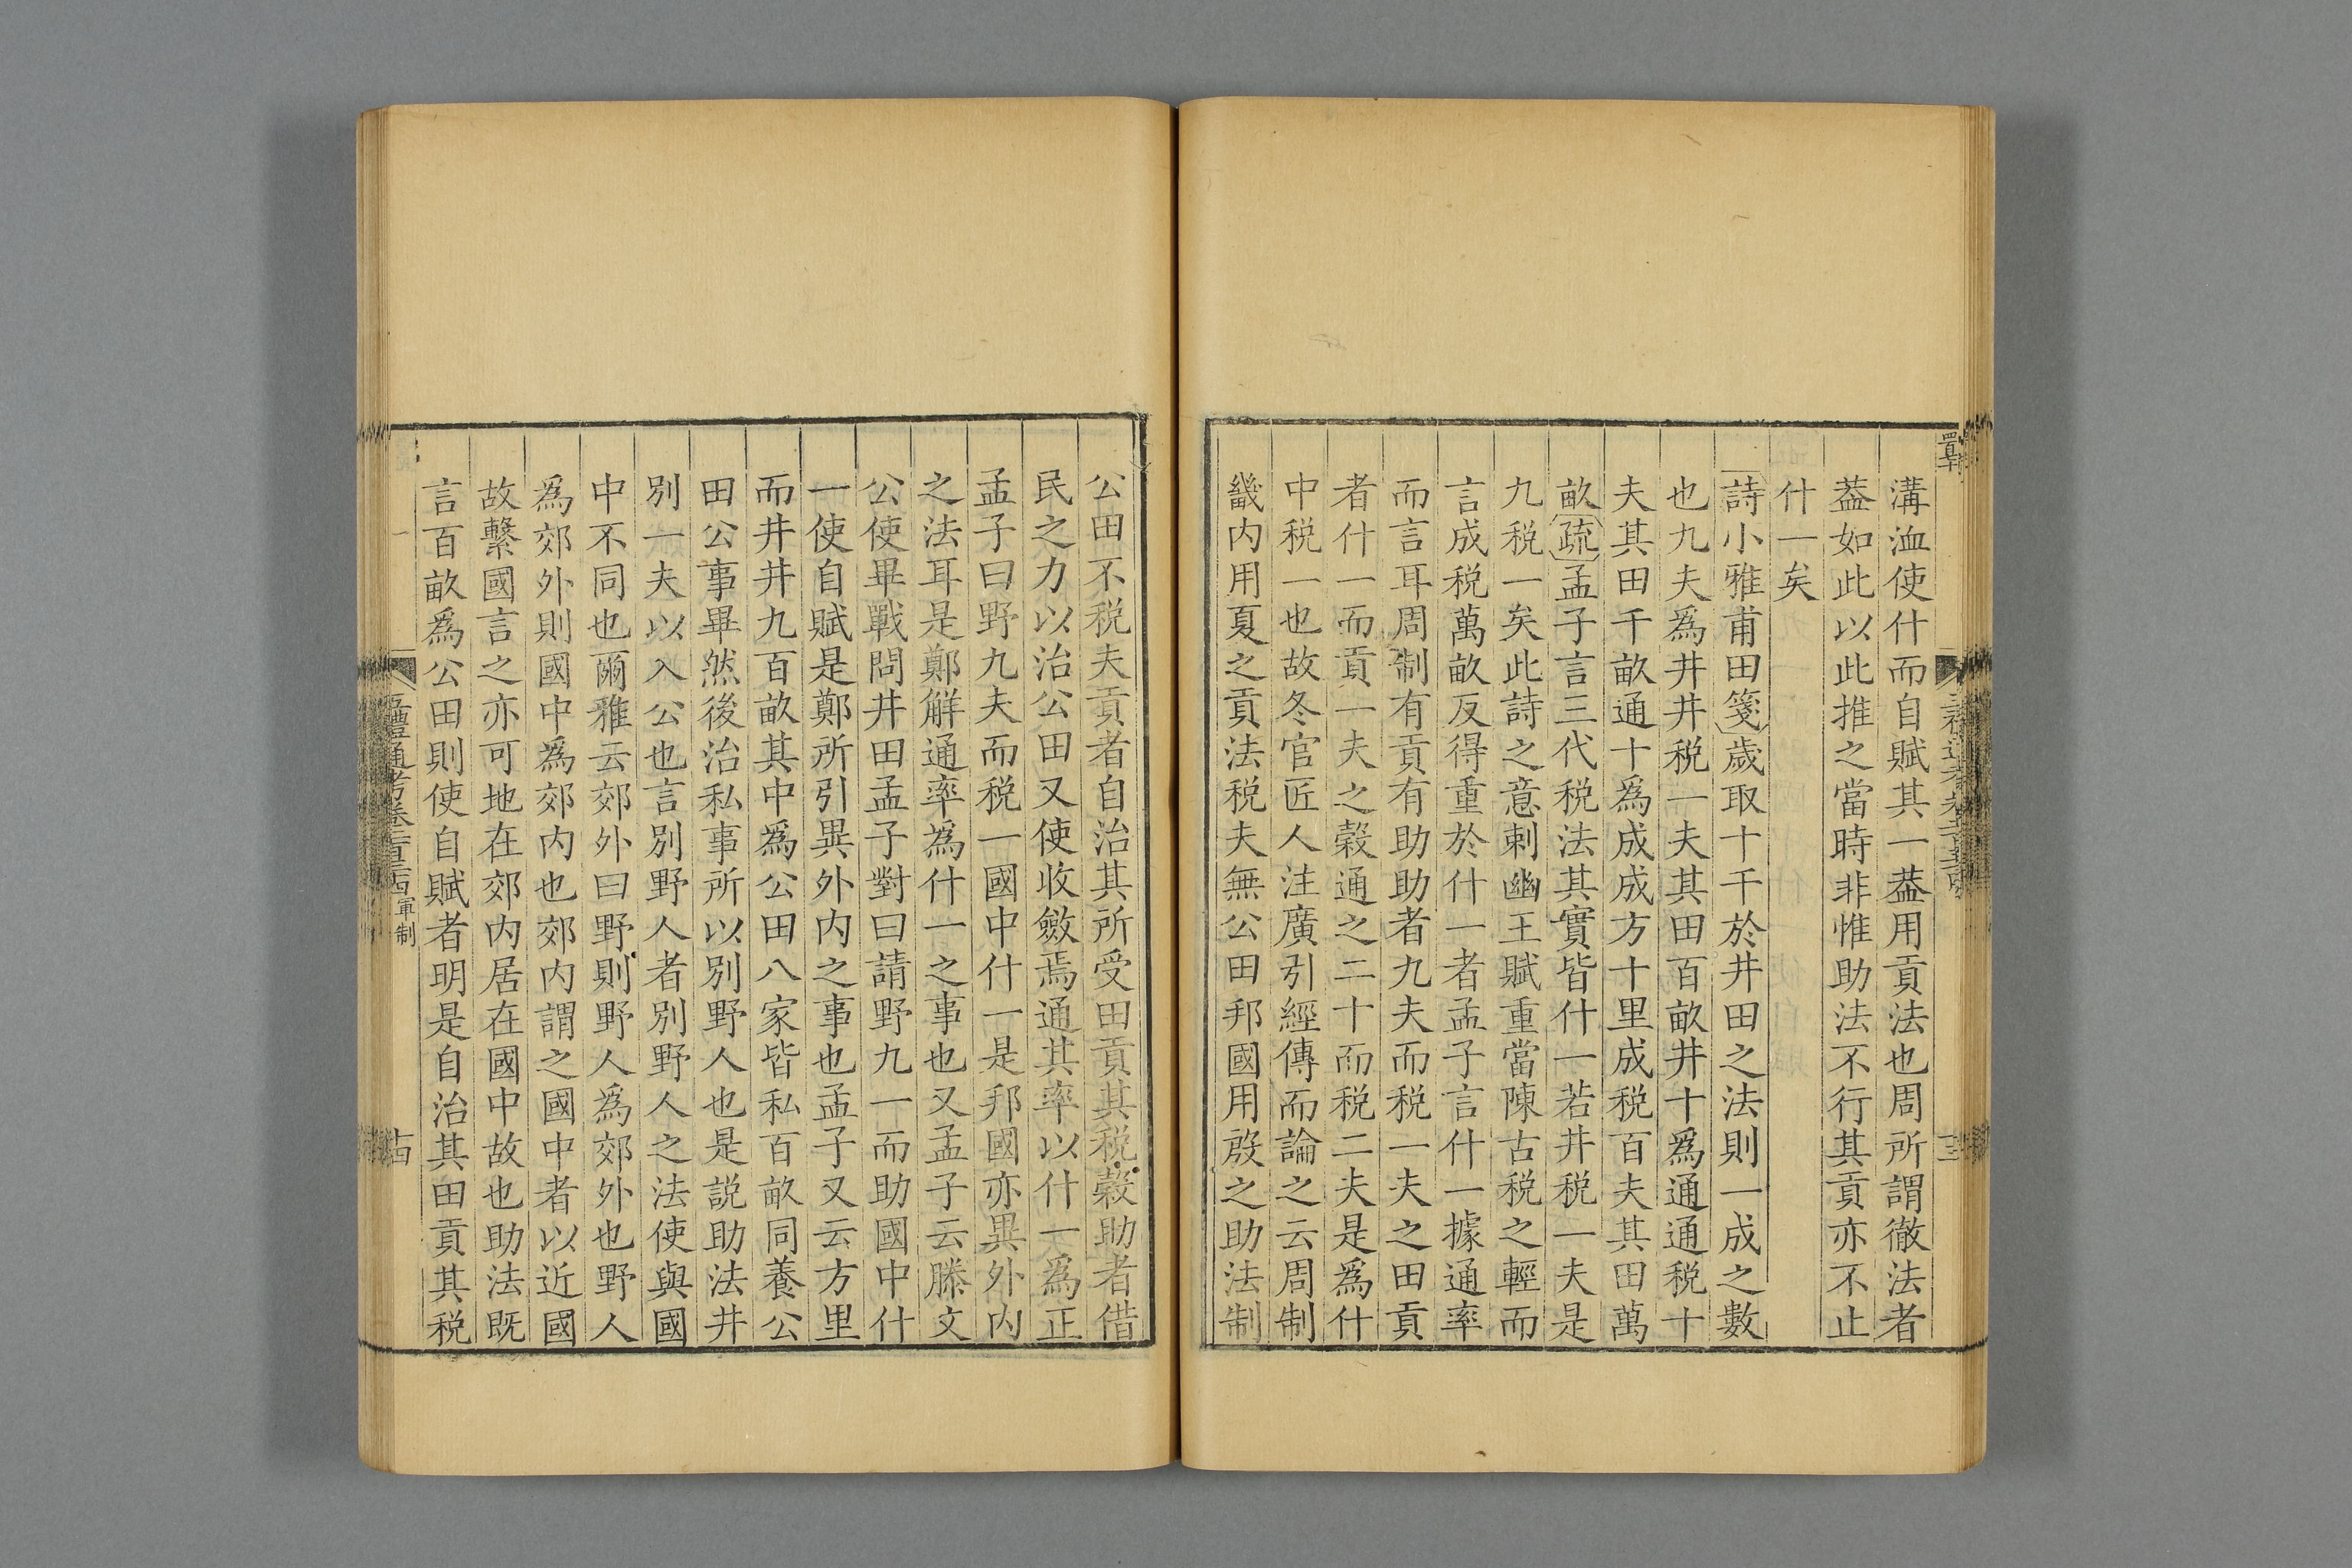 溝洫使什而自賦其一葢用貢法也周所謂徹法者
葢如此以此推之當時非惟助法不行其貢亦不止
什一矣
詩小雅甫田箋歲取十千於井田之法則一成之數
也九夫爲井井税一夫其田百畝井十爲通通税十
夫其田千畝通十爲成成方十里成税百夫其田萬
畝疏孟子言三代税法其實皆什一若井税一夫是
九税一矣此詩之意刺幽王賦重當陳古税之輕而
言成税萬畝反得重於什一者孟子言什一據通率
而言耳周制有貢有助助者九夫而税一夫之田貢
者什一而貢一夫之穀通之二十而税二夫是爲什
中税一也故冬官匠人注廣引經傳而論之云周制
畿内用夏之貢法税夫無公田邦國用殷之助法制
公田不税夫貢者自治其所受田貢其税穀助者借
民之力以治公田又使收斂焉通其率以什一爲正
孟子曰野九夫而税一國中什一是邦國亦異外内
之法耳是鄭解通率爲什一之事也又孟子云滕文
公使畢戰問井田孟子對曰請野九一而助國中什
一使自賦是鄭所引異外内之事也孟子又云方里
而井井九百畝其中爲公田八家皆私百畝同養公
田公事畢然後治私事所以别野人也是説助法井
别一夫以入公也言别野人者别野人之法使與國
中不同也爾雅云郊外曰野則野人爲郊外也野人
爲郊外則國中爲郊内也郊内謂之國中者以近國
故繫國言之亦可地在郊内居在國中故也助法既
言百畝爲公田則使自賦者明是自治其田貢其税
軍制